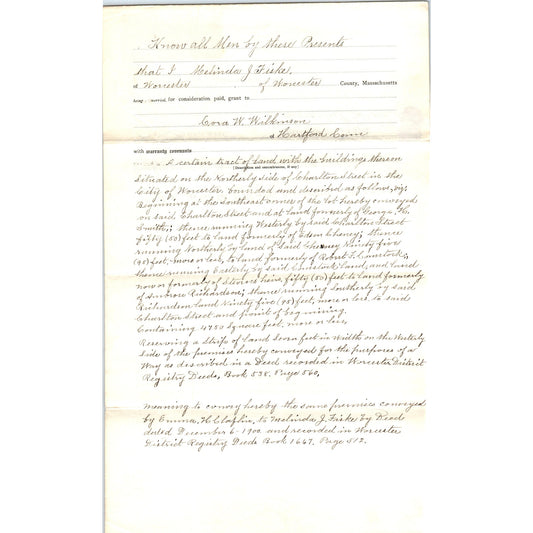 Know all Men by these Presents
that I Melinda J Fiske,
of Worcester of Worcester County, Massachusetts
for consideration paid, grant to
Cora W. Wilkinson
of Hartford Conn
with warranty covenants
A certain tract of Land with the buildings thereon
situated on the Northerly side of Charlton Street in the
City of Worcester bounded and described as follows, viz;
Beginning at the Southeast corner of the lot hereby conveyed
on said Charlton Street and at Land formerly of George
Smith,; thence running Westerly by said Charlton Street
fifty (50) feet to Land formerly of Cheney; thence
running Northerly by Land of said Cheney Ninety five
(95) feet, more or less, to Land formerly of Robert F. Comstock;
thence running Easterly by said Comstock Land, and Land
now or formerly of heirs, fifty (50) feet to Land formerly
of Ambrose Richardson; thence running Southerly by said
Richardson Land Ninety five (95) feet, more or less, to said
Charlton Street and point of beginning.
Containing 4750 square feet, more or less,
Reserving a Strip of Land feet in Width on the Westerly
side of the premises hereby conveyed for the purposes of a
Way as described in a Deed recorded in Worcester District
Registry Deeds, Book 538, Page 560,
meaning to convey hereby the same premises conveyed
by Emma H. Claflin, to Melinda J. Fiske by Deed
dated December 6- 1900 and recorded in Worcester
District Registry Deeds Book 1667, Page 512.